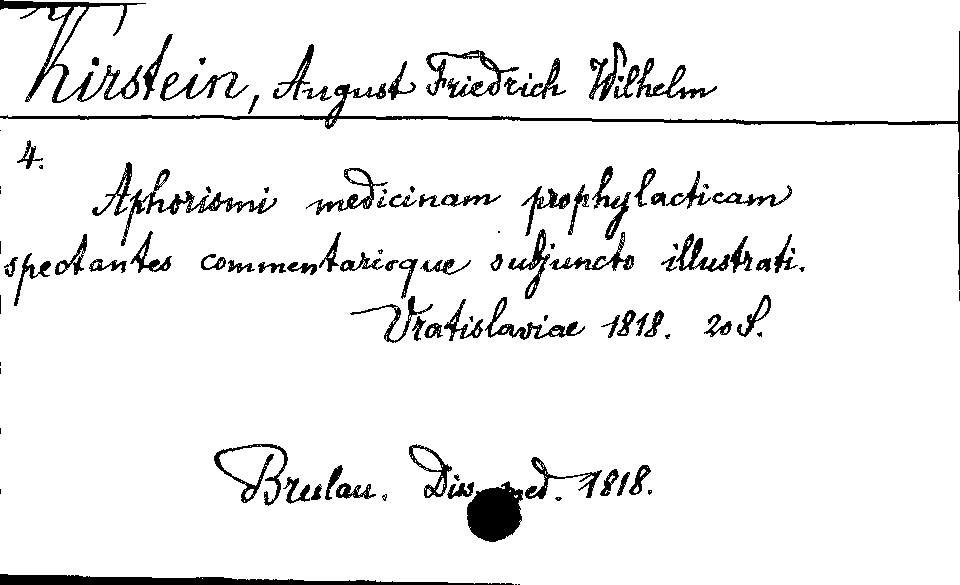 Kirstein, August Friedrich Wilhelm
4.
Aphorismi medicinam prophylacticam
spectantes commentarioque subjuncto illustrati.
Vratislaviae 1818. 20 S.
Breslau. Diss. med. 1818.